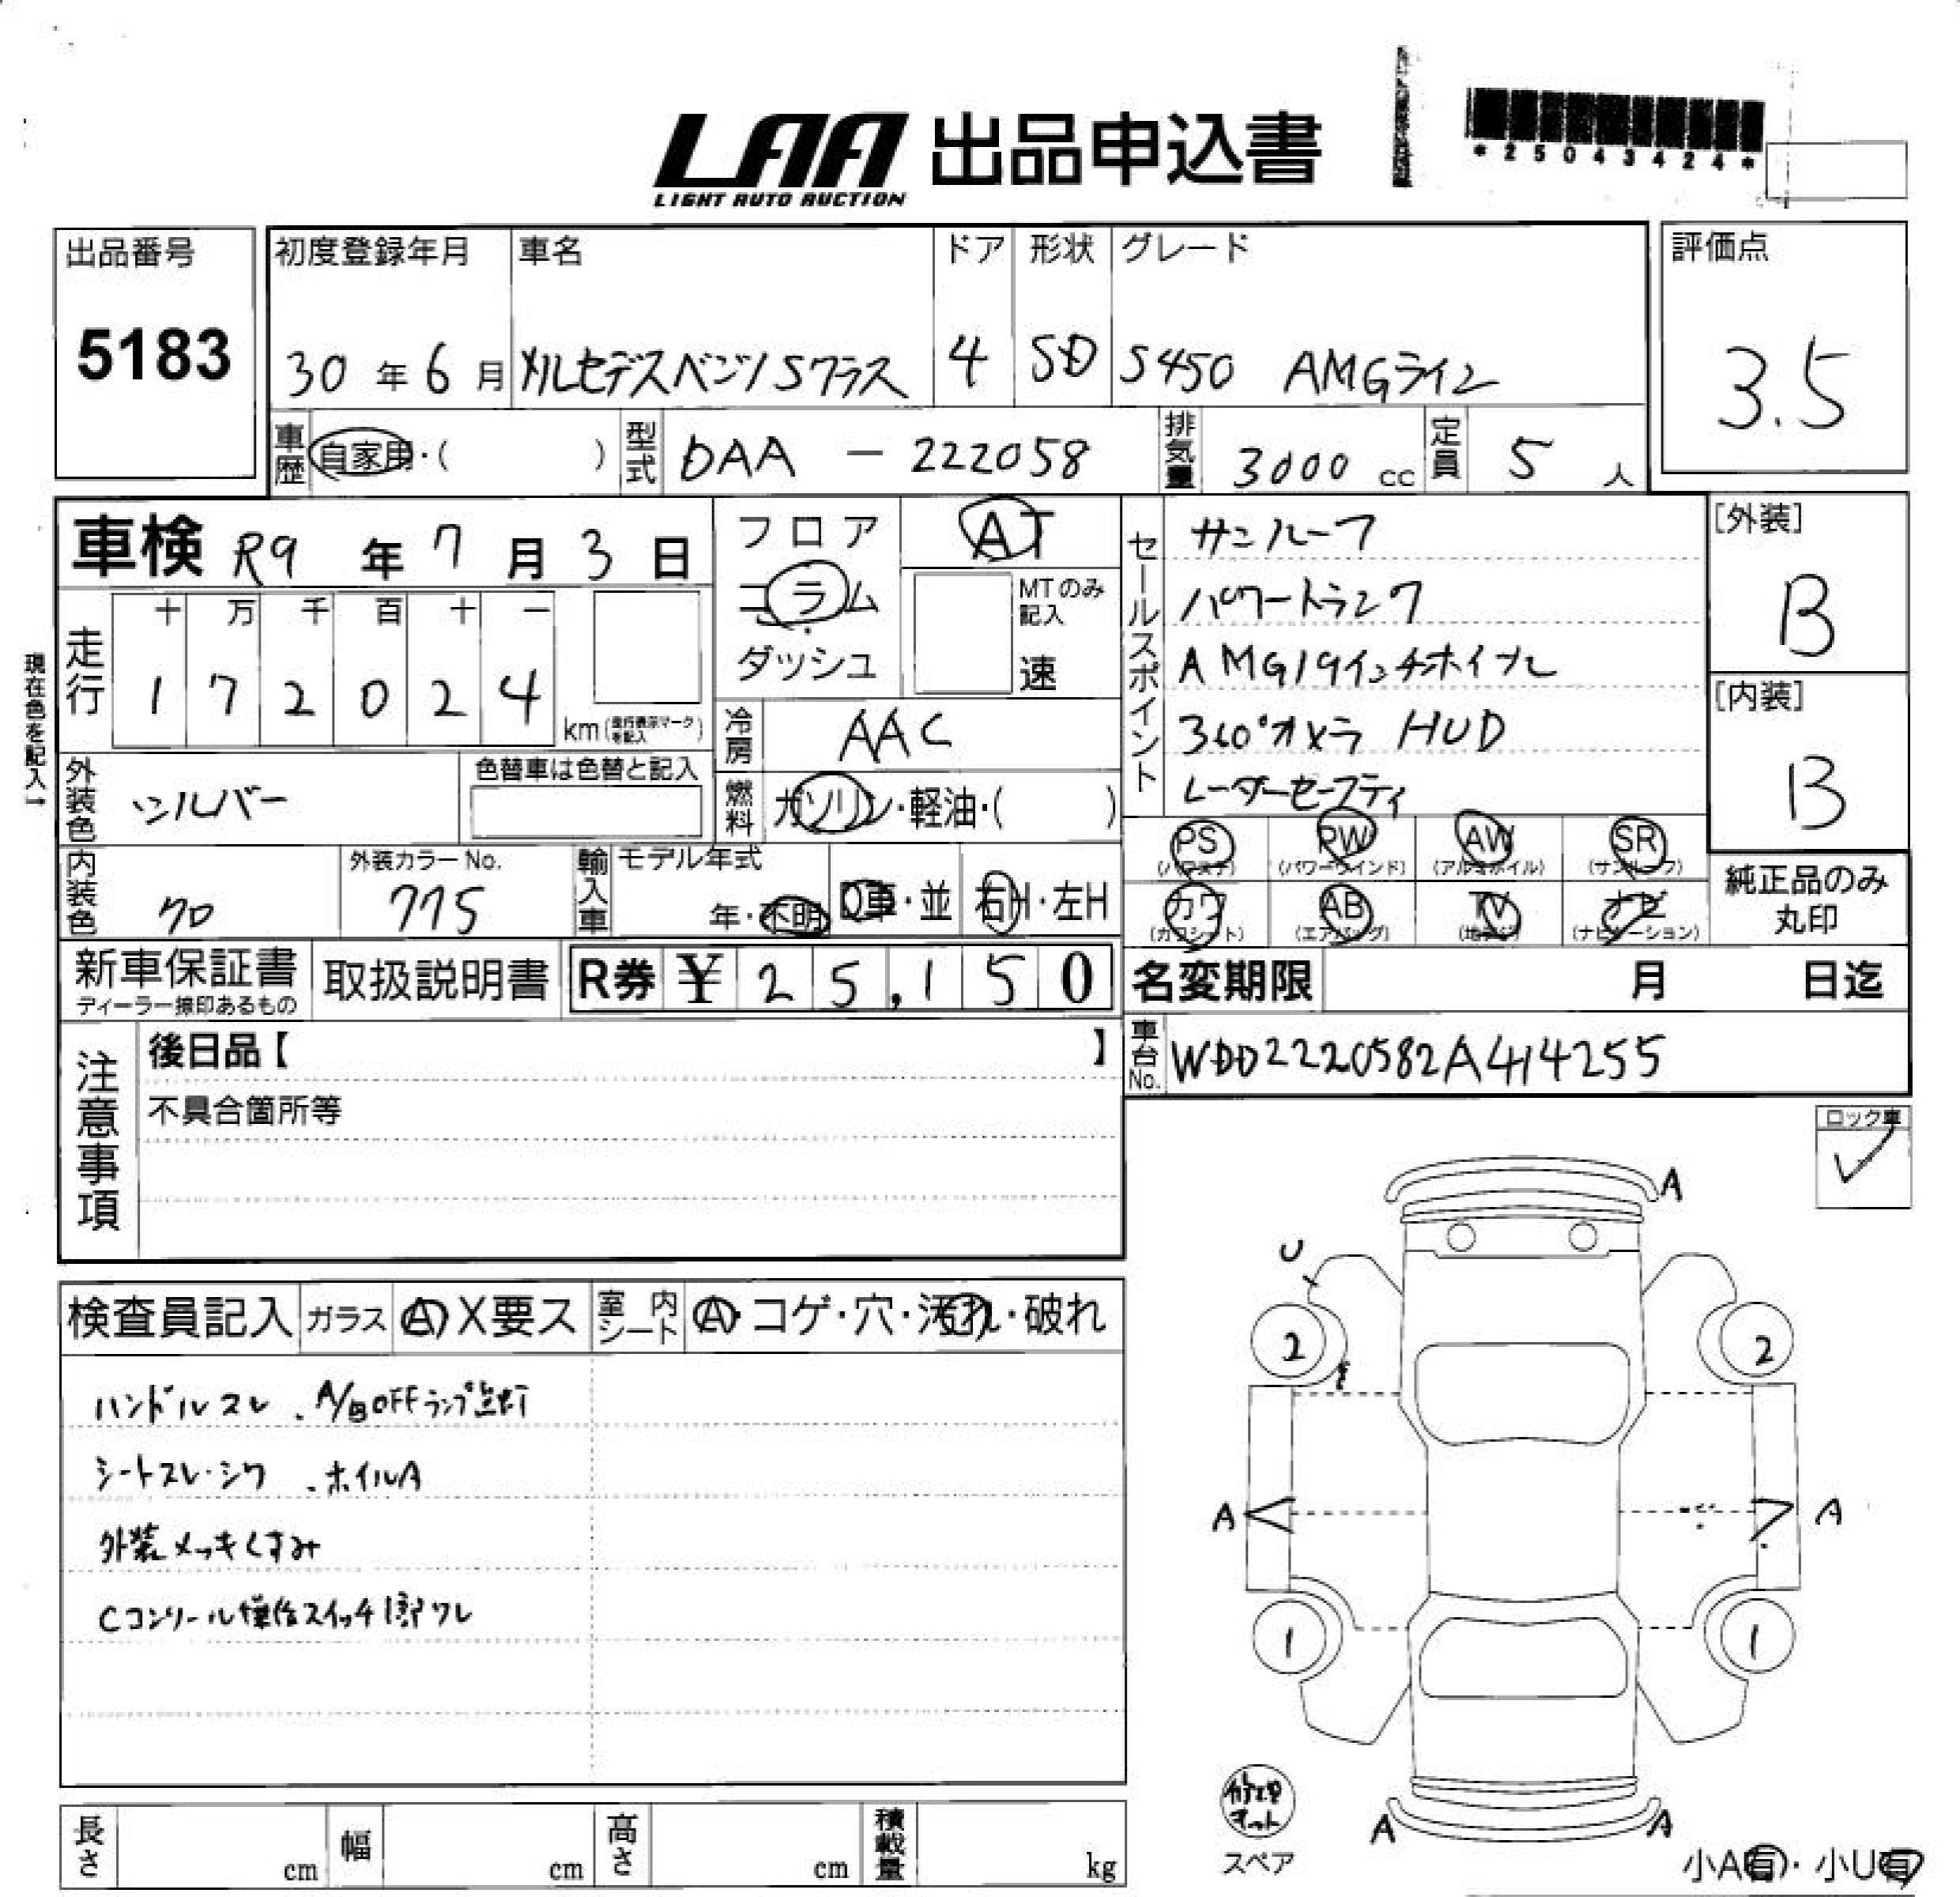 LAA 出品申込書
LIGHT AUTO AUCTION
*25043424*
出品番号
5183
初度登録年月 車名 ドア 形状 グレード
30年6月 メルセデスベンツSクラス 4 SD S450 AMGライン
評価点
3.5
車歴 自家用・( ) 型式 DAA - 222058 排気量 3000cc 定員 5人
車検 R9年7月3日
フロア
コラム
ダッシュ
AT
MTのみ記入
速
セールスポイント
サンルーフ
パワートランク
AMG19インチホイール
360°カメラ HUD
レーダーセーフティ
[外装]
B
[内装]
B
現在色を記入→
走行 十 万 千 百 十 一
1 7 2 0 2 4 km(走行表示マークを記入)
冷房 AAC
外装色 シルバー 色替車は色替と記入
燃料 ガソリン・軽油・( )
内装色 クロ 外装カラーNo. 775 輸入車 モデル年式 年・不明 D車・並 右H・左H
PS (パワステ) PW (パワーウインド) AW (アルミホイル) SR (サンルーフ)
カワ (カワシート) AB (エアバッグ) TV (地デジ) ナビ (ナビゲーション)
純正品のみ
丸印
新車保証書 ディーラー捺印あるもの 取扱説明書 R券 ¥25,150
名変期限 月 日迄
車台No. WDD2220582A414255
注意事項
後日品【 】
不具合箇所等
ロック車
✓
検査員記入 ガラス A X要ス 室内シート A・コゲ・穴・汚れ・破れ
ハンドルスレ .A/B OFFランプ点灯
シートスレ・シワ .ホイルA
外装メッキくすみ
Cコンソール操作スイッチ1部ワレ
A
U
2 2
A A
1 1
A A
修理キット
スペア
小A有・小U有
長さ cm 幅 cm 高さ cm 積載量 kg